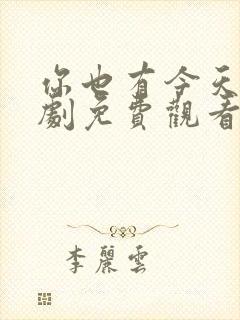 你也有今天
劇免費觀看
李麗雲